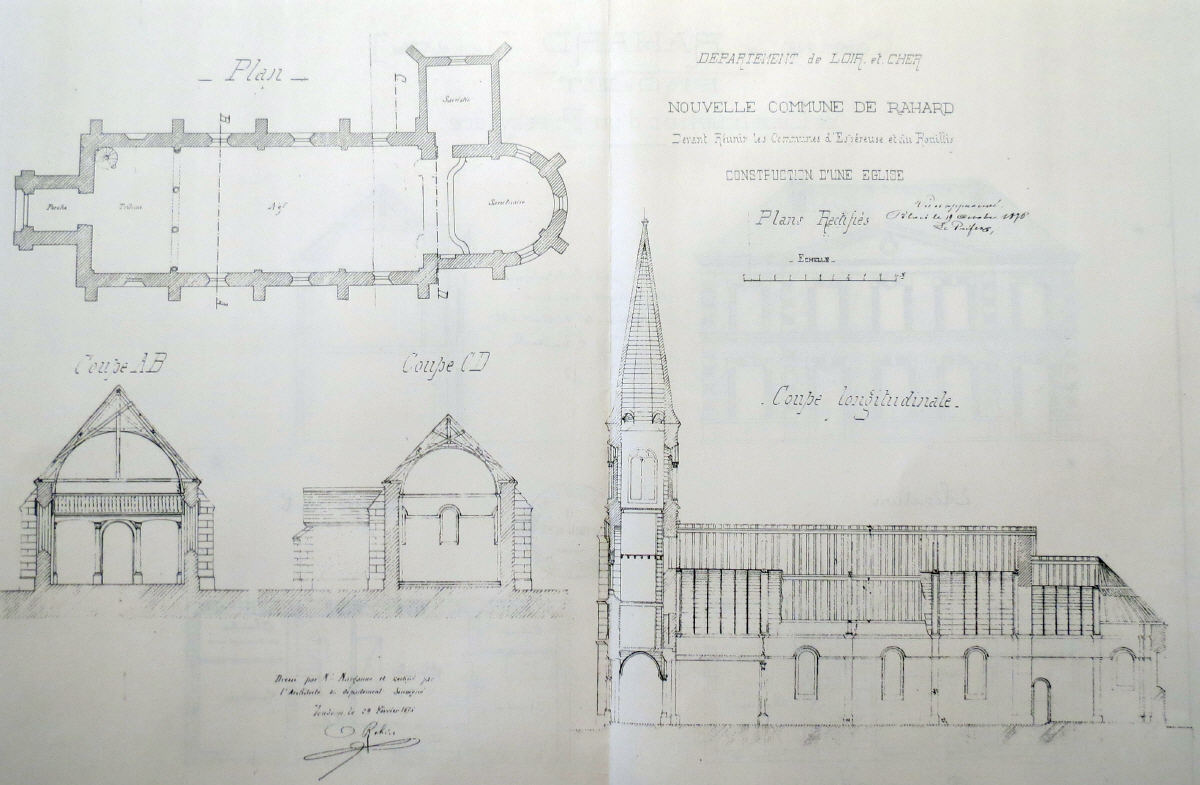 Plan
Sacristie
Porche
Tribune
Nef
Sanctuaire
DEPARTEMENT de LOIR et CHER
NOUVELLE COMMUNE DE RAHARD
Devant Réunir les Communes d'Espéreuse et du Rouillis
CONSTRUCTION D'UNE EGLISE
Plans Rectifiés
Vu et approuvé
Blois le 19 Octobre 1876
Le Préfet,
ECHELLE
Coupe AB
Coupe CD
Coupe longitudinale
Dressé par Mr et rectifié par
l'Architecte du département soussigné
Vendôme le 29 Février 1876